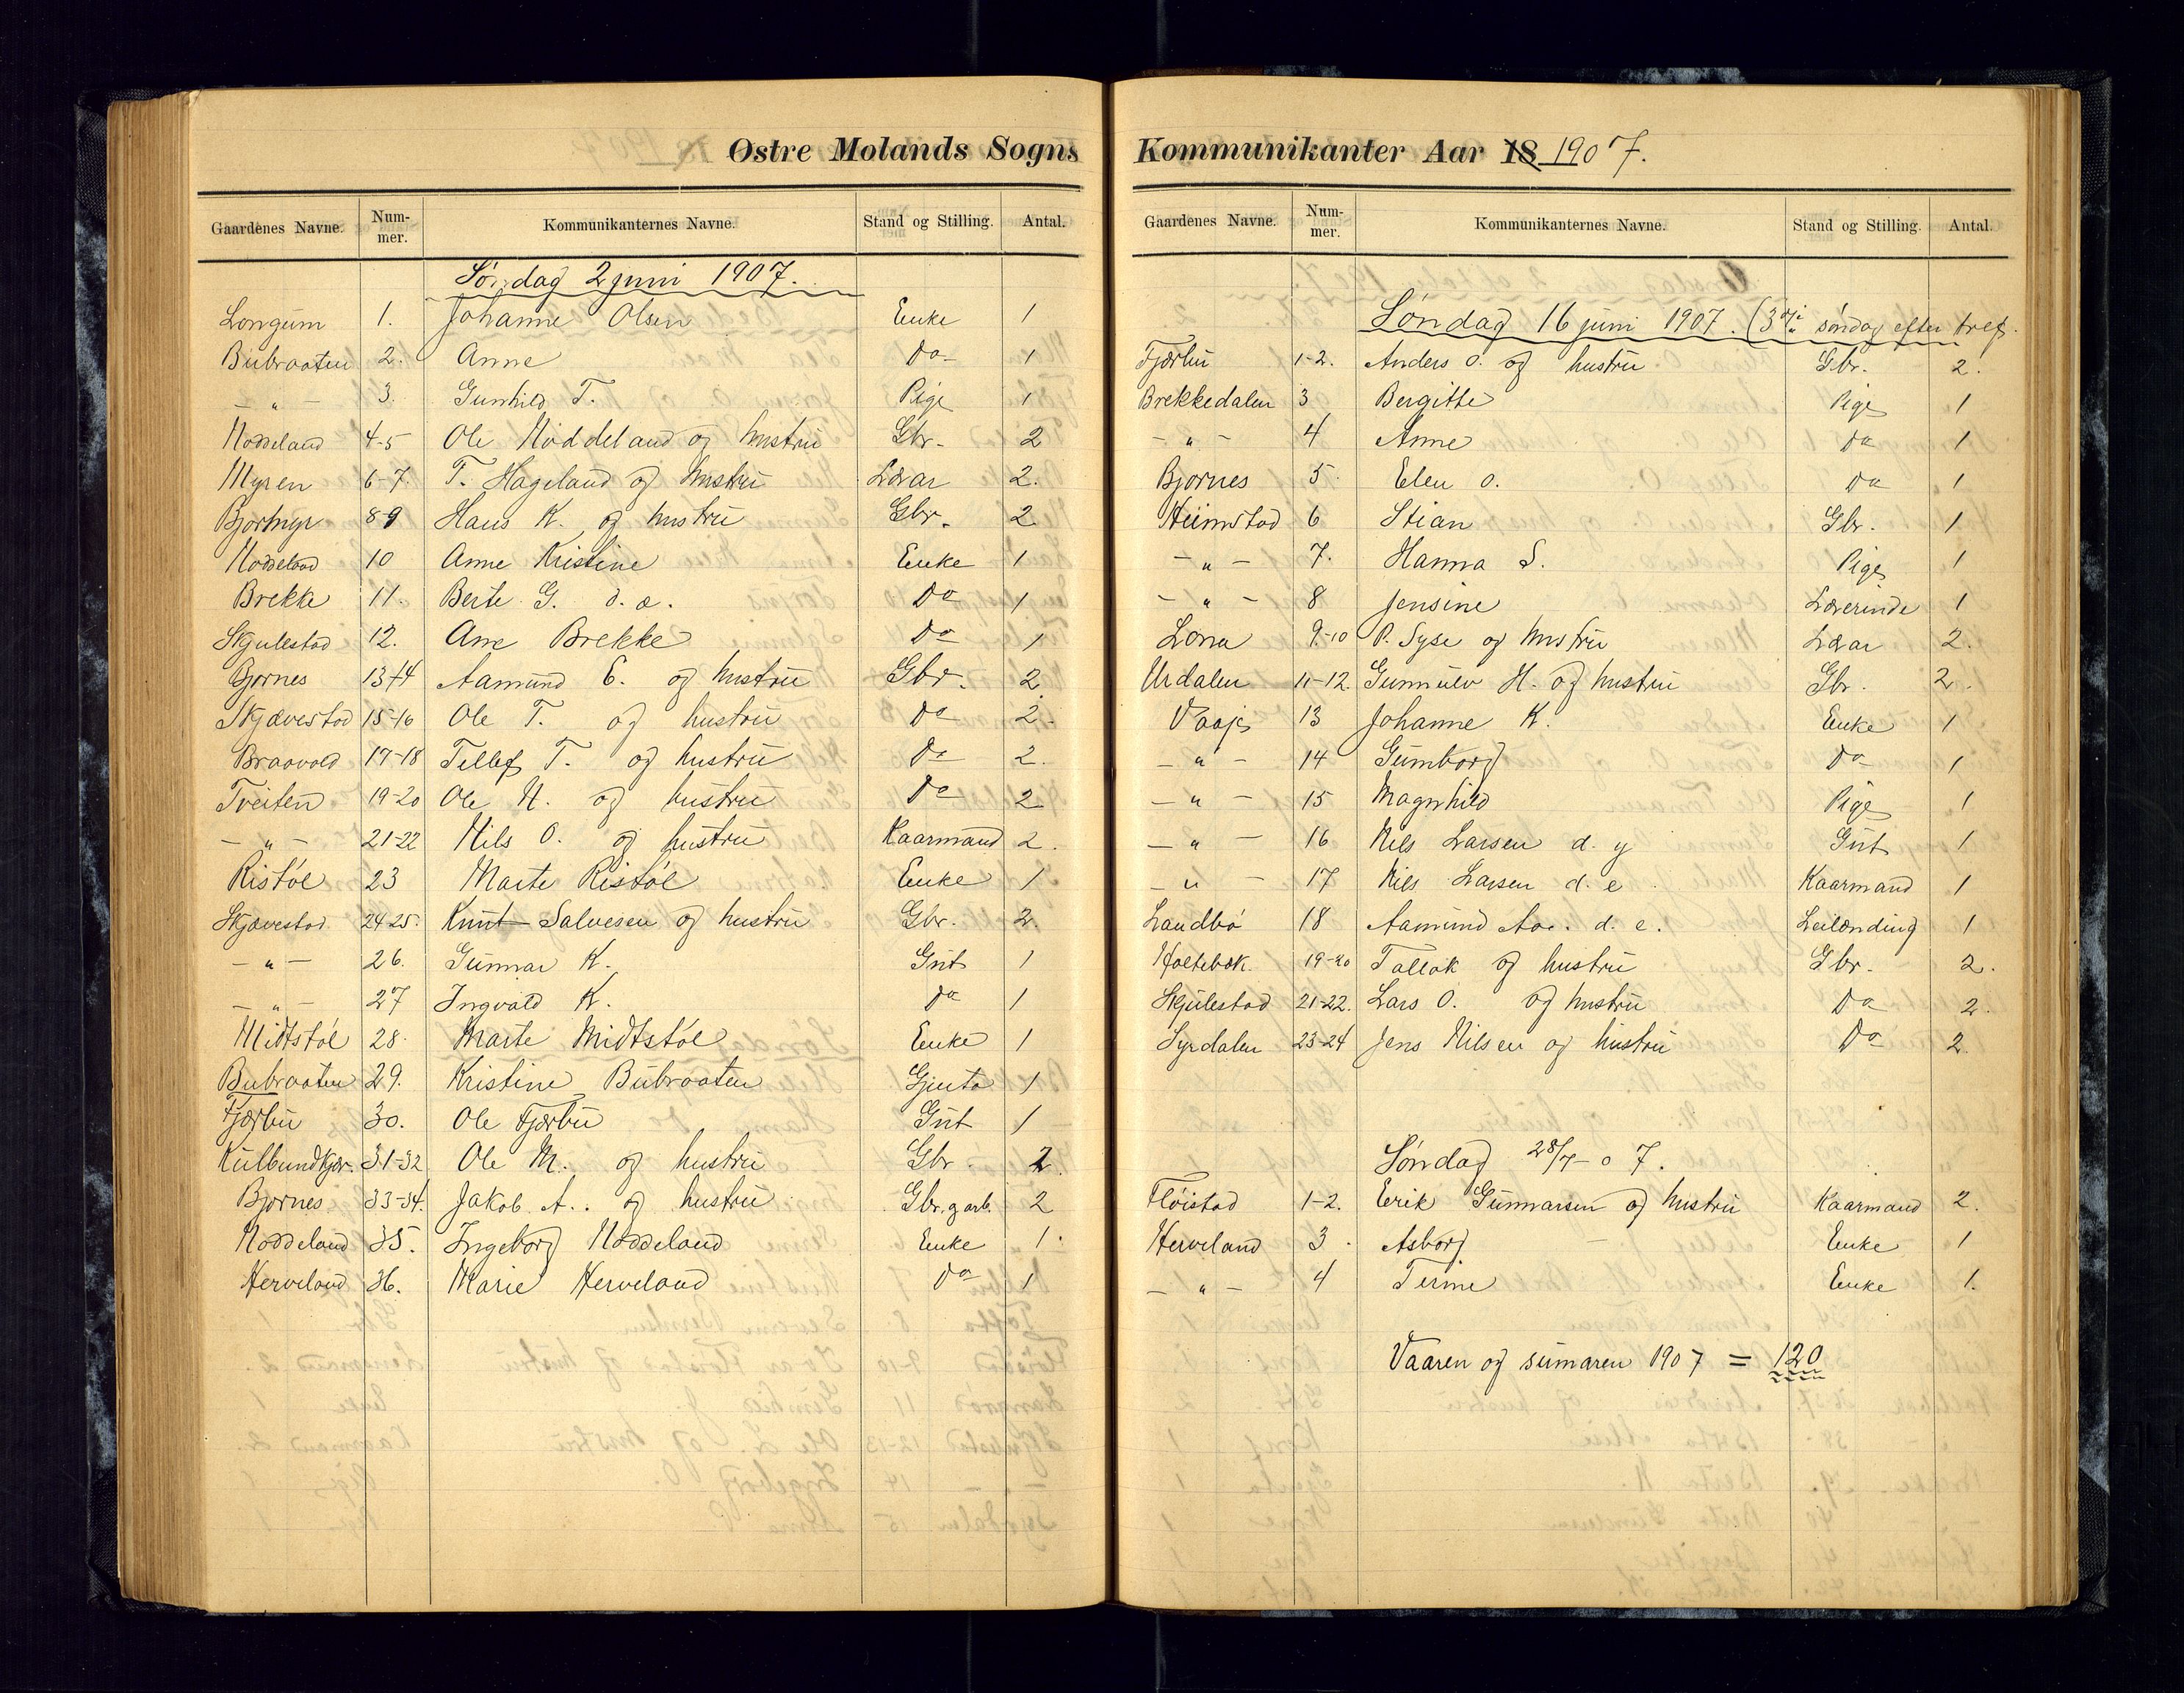 Østre Molands Sogns
Gaardenes Navne. Nummer. Kommunikanternes Navne. Stand og Stilling. Antal.
Søndag 2 juni 1907.
Longum 1. Johanne Olsen Enke 1
Bubraaten 2. Anne Do 1
— " — 3. Gunhild T. Pige 1
Nøddeland 4-5 Ole Nøddeland og hustru Gbr. 2
Myren 6-7. T. Hageland og hustru Lærar 2.
Bjortmyr 8-9 Hans K. og hustru Gbr. 2
Nøddeland 10 Anne Kristine Enke 1
Brekka 11. Berte G. d. æ. Do 1
Skjulestad 12. Ane Brekke Do 1
Bjørnes 13-14 Aamund E. og hustru Gbr. 2.
Skjævestad 15-16 Ole T. og hustru Do 2.
Braavold 17-18 Tellef T. og hustru Do 2.
Tveiten 19-20 Ole N. og hustru Do 2
— " — 21-22 Nils O. og hustru Kaarmand 2.
Ristøl 23 Marte Ristøl Enke 1
Skjævestad 24-25. Knut Salvesen og hustru Gbr. 2.
— " — 26. Gunnar K. Gut 1
— " — 27 Ingvald K. Do 1
Midtstøl 28. Marte Midtstøl Enke 1
Bubraaten 29. Kristine Bubraaten Gjenta 1
Fjærbu 30. Ole Fjærbu Gut 1
Kulbundkjær. 31-32 Ole M. og hustru Gbr. 2.
Bjørnes 33-34. Jakob A. og hustru Gbr. g arb. 2
Nøddeland 35. Ingeborg Nøddeland Enke 1.
Herveland 36. Marie Herveland Do 1
Kommunikanter Aar 18 1907.
Gaardenes Navne. Nummer. Kommunikanternes Navne. Stand og Stilling. Antal.
Søndag 16 juni 1907. (3die søndag efter tref.
Fjærbu 1-2. Anders O. og hustru Gbr. 2.
Brekkedalen 3 Bergitte Pige 1
— " — 4 Anne Do 1
Bjørnes 5. Elen O. Do 1
Heimstad 6 Stian Gbr. 1
— " — 7. Hanna S. Pige 1
— " — 8 Jensine Lærerinde 1
Løna 9-10 P. Syse og hustru Lærar 2.
Urdalen 11-12. Gunnulv H. og hustru Gbr. 2.
Vaaje 13 Johanne K. Enke 1
— " — 14 Gumborg Do 1
— " — 15 Magnhild Pige 1
— " — 16 Nils Larsen d. y Gut 1
— " — 17 Nils Larsen d. e Kaarmand 1
Landbø 18 Aamund Aa. d. e. Leilænding 1
Holtebæk. 19-20 Tallak og hustru Gbr. 2.
Skjulestad 21-22. Lars O. og hustru Do 2.
Syrdalen 23-24 Jens Nilsen og hustru Do 2.
Søndag 28/7-07.
Fløistad 1-2. Eerik Gunnarsen og hustru Kaarmand 2.
Herveland 3. Asborg Enke 1
— " — 4 Terine Enke 1.
Vaaren og sumaren 1907 = 120